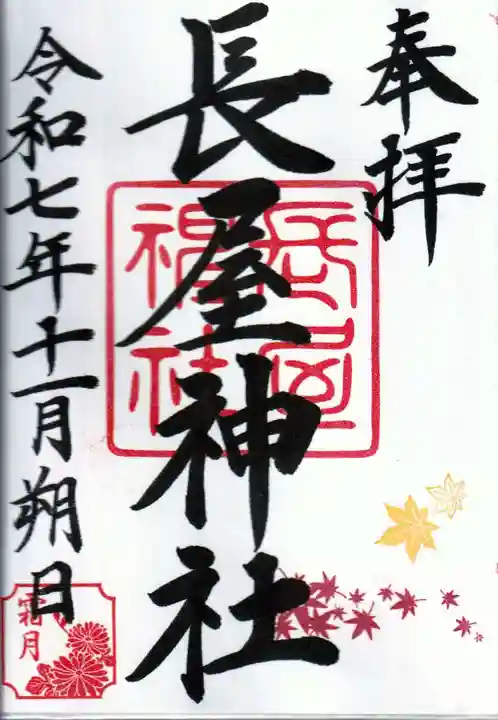 奉拝
長屋神社
長屋神社
令和七年十一月朔日
霜月